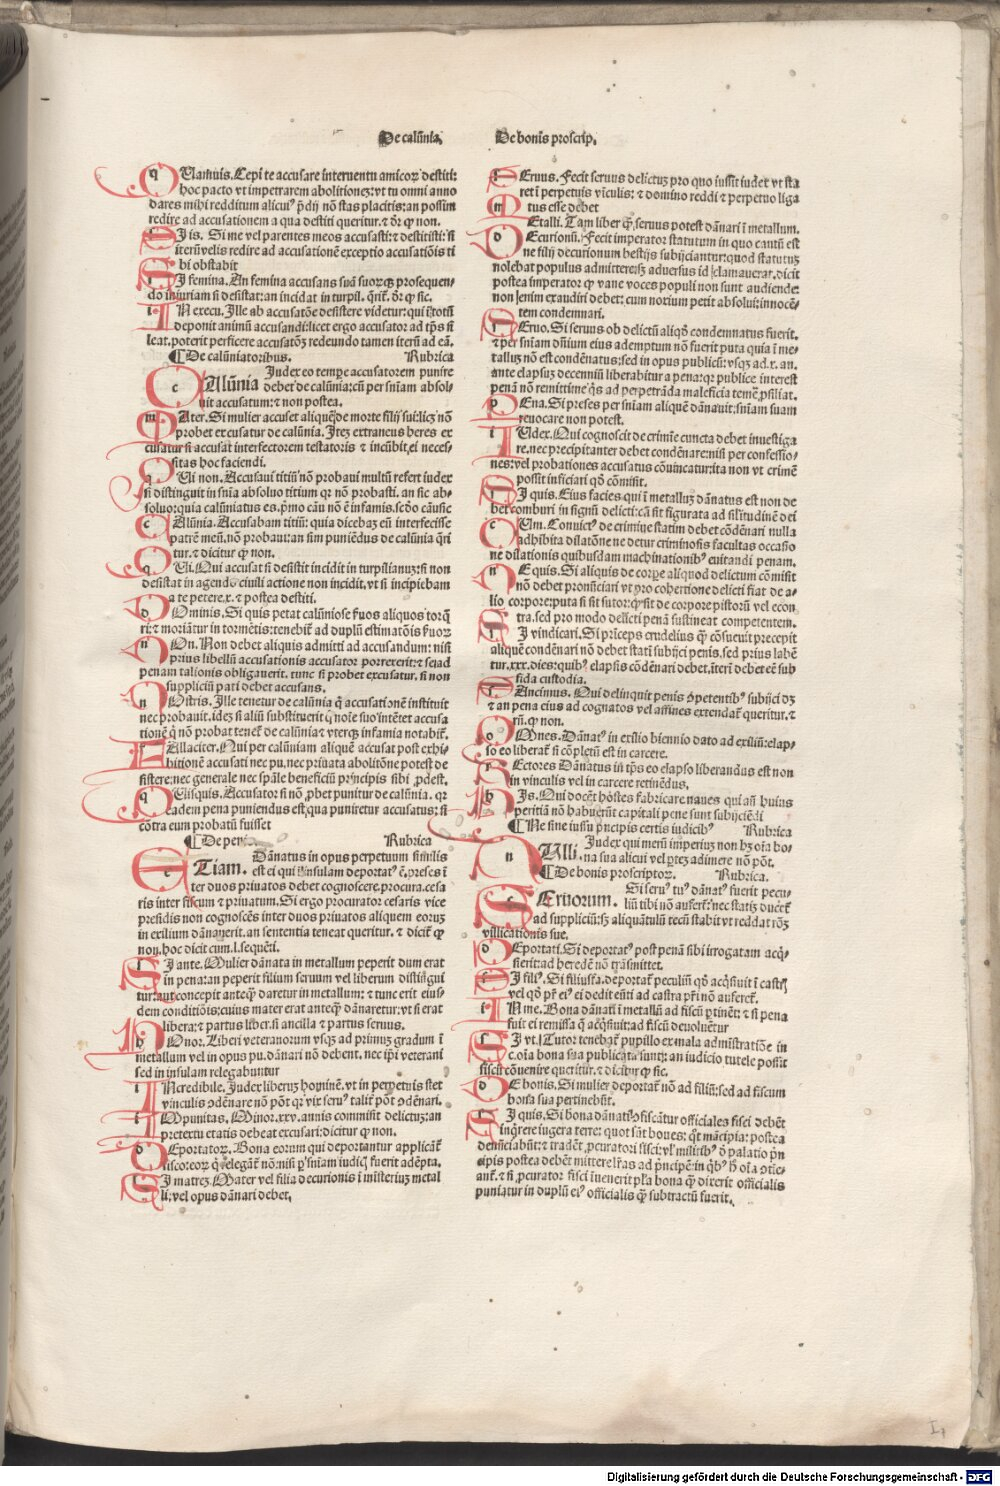 De calūnia.
De bonis proscrip.
Uamuis. Cepi te accusare interuentu amicoꝝ destiti:
hoc pacto vt impetrarem abolitionez: vt tu omni anno
dares mihi redditum alicuiꝰ p̄dij nō stas placitis: an possim
redire ad accusationem a qua destiti queritur. ⁊ dr̄ ꝙ non.
I is. Si me vel parentes meos accusasti: ⁊ destitisti: si
iterū velis redire ad accusationē exceptio accusatiōis ti
bi obstabit
I femina. An femina accusans suā suorūqꝫ prosequen
do iniuriam si desistat: an incidat in turpil. q̄rit̄. dr̄ ꝙ sic.
N execu. Ille ab accusatōe desistere videtur: qui ī totū
deponit animū accusandi: licet ergo accusator ad tp̄s si
leat. poterit perficere accusatōꝫ redeundo tamen iterū ad eā.
¶ De calūniatoribus. Rubrica
Judex eo tempe accusatorem punire
Allūnia debet de calūnia: cū per sniam absol
uit accusatum: ⁊ non postea.
Ater. Si mulier accuset aliquē de morte filij sui: licꝫ nō
probet excusatur de calūnia. Itez extraneus heres ex
cusatur si accusat interfectorem testatoris ⁊ incūbit ei neces
sitas hoc faciendi.
Ui non. Accusaui titiū nō probaui multū refert iudex
si distinguit in snīa absoluo titium qr nō probasti. an sic ab
soluo: quia calūniatus es. p̄mo cāu nō ē infamis. scd̄o cāu sic
Alūnia. Accusabam titiū: quia dicebaꝫ eū interfecisse
patrē meū. nō probaui: an sim puniēdus de calūnia q̄ri
tur. ⁊ dicitur ꝙ non.
Ui. Qui accusat si desistit incidit in turpilianuꝫ: si non
desistat in agendo ciuili actione non incidit. vt si incipiebam
a te petere .x. ⁊ postea destiti.
Ominis. Si quis petat calūniose ẜuos aliquos torq̄
ri: ⁊ moriātur in tormētis: tenebit̄ ad duplū estimatōis ẜuoꝝ
On. Non debet aliquis admitti ad accusandum: nisi
prius libellū accusationis accusator porrexerit: ⁊ se ad
penam talionis obligauerit. tunc si probet excusatur. si non
suppliciū pati debet accusans.
Ostris. Ille tenetur de calūnia q̄ accusationē instituit
nec probauit. ideꝫ si aliū substituerit q̄ noīe suo intētet accusa
tionē q̄ nō probat tenet̄ de calūnia: ⁊ vterqꝫ infamia notabit̄.
Allaciter. Qui per calūniam aliquē accusat post exhi
bitionē accusati nec pu. nec priuata abolitōne potest de
sistere: nec generale nec sp̄ale beneficiū principis sibi ꝓdest.
Uisquis. Accusator si nō ꝓbet punitur de calūnia. qr
eadem pena puniendus est qua puniretur accusatus: si
cōtra eum probatū fuisset
¶ De pen. Rubrica
Dānatus in opus perpetuum similis
Tiam. est ei qui ī insulam deportatꝰ ē. p̄ses ī
ter duos priuatos debet cognoscere. procura. cesa
ris inter fiscum ⁊ priuatum. Si ergo procurator cesaris vice
presidis non cognoscēs inter duos priuatos aliquem eoruꝫ
in exilium dānauerit. an sententia teneat queritur. ⁊ dicit̄ ꝙ
non. hoc dicit cum .l. sequēti.
I ante. Mulier dānata in metallum peperit dum erat
in pena: an peperit filium seruum vel liberum distīgui
tur: aut concepit anteqꝫ daretur in metallum: ⁊ tunc erit eius
dem conditiōis: cuius mater erat anteqꝫ dānaretur. vt si erat
libera: ⁊ partus liber. si ancilla ⁊ partus seruus.
Onor. Liberi veteranorum vsqꝫ ad primuꝫ gradum ī
metallum vel in opus pu. dānari nō debent. nec ip̄i veterani
sed in insulam relegabuntur
Ncredibile. Judex liberuꝫ hominē. vt in perpetuis stet
vinculis ↄdēnare nō pōt qr vix seruꝰ talit̄ pōt ↄdēnari.
Mpunitas. Minor .xxv. annis commisit delictuꝫ: an
pretextu etatis debeat excusari: dicitur ꝙ non.
Eportatoꝝ. Bona eorum qui deportantur applicāt̄
fisco: eoꝝ q̄ relegāt̄ nō: nisi ꝑ sniam iudicꝫ fuerit adēpta.
I matreꝫ. Mater vel filia decurionis ī misteriuꝫ metal
li: vel opus dānari debet.
Eruus. Fecit seruus delictuꝫ pro quo iussit iudex vt sta
ret ī perpetuis vīculis: ⁊ domino reddi ⁊ perpetuo liga
tus esse debet
Etalli. Tam liber qꝫ seruus potest dānari ī metallum.
Ecurionū. Fecit imperator statutum in quo cautū est
ne filij decurionum bestijs subijciantur: quod statutuꝫ
nolebat populus admittere: sꝫ aduersus id clamauerat. dicit
postea imperator ꝙ vane voces populi non sunt audiende:
non enim exaudiri debet: cum notium petit absolui: innocē
tem condemnari.
Eruo. Si seruus ob delictū aliqḋ condemnatus fuerit.
⁊ per sniam dn̄ium eius ademptum nō fuerit puta quia ī me
talluꝫ nō est condēnatus: sed in opus publicū: vsqꝫ ad .x. an.
ante elapsuꝫ decenniū liberabitur a pena: qr publice interest
penā nō remittine q̄s ad perpetrāda maleficia temē ꝓsiliat.
Ena. Si preses per sniam aliquē dānauit: sniam suam
reuocare non potest.
Udex. Qui cognoscit de crimīe cuncta debet inuestiga
re. nec precipitanter debet condēnare: nisi per confessio
nes: vel probationes accusatus cōuincatur: ita non vt crimē
possit inficiari qḋ cōmisit.
I quis. Eius facies qui ī metalluꝫ dānatus est non de
bet comburi in signū delicti: cā sit figurata ad silītudinē dei
Um. Conuictꝰ de crimine statim debet cōdēnari nulla
adhibita dilatōne ne detur criminosis facultas occasio
ne dilationis quibusdam machinationibꝰ euitandi penam.
E quis. Si aliquis de corpe aliquod delictum cōmisit
nō debet pronūciari vt pro cohertione delicti fiat de a
lio corpore: puta si sit sutor: q̄ sit de corpore pistorū vel econ
tra. sed pro modo delicti penā sustineat competentem.
I vindicari. Si p̄rīceps crudelius qꝫ cōsueuit precepit
aliquē condēnari nō debet statī subijci penis. sed prius labē
tur .xxx. dies: quibꝰ elapsis cōdēnari debet. iterū debet eē sub
fida custodia.
Ancimus. Qui delinquit penis ꝯpetentibꝰ subijci dꝫ
⁊ an pena eius ad cognatos vel affines extendat̄ queritur. ⁊
rn̄. ꝙ non.
Mnes. Dānatꝰ in exilio biennio dato ad exiliū: elap
so eo liberat̄ si cōpletū est in carcere.
Ectores Dānatus in tp̄s eo elapso liberandus est non
in vinculis vel in carcere retinēdus.
Is. Qui docēt hostes fabricare naues qui añ huius
peritiā nō habuerūt capitali pene sunt subijciēdi
¶ Ne sine iussu p̄ncipis certis iudicibꝰ Rubrica
Judex qui merū imperiuꝫ non hꝫ oīa bo
Ulli. na sua alicui vel ꝑtez adimere nō pōt.
¶ De bonis proscriptoꝝ. Rubrica.
Si seruꝰ tuꝰ dānatꝰ fuerit pecu
Eruorum. liū tibi nō aufert̄: nec statiꝫ ducet̄
ad suppliciū: sꝫ aliquātulū tecū stabit vt reddat rōꝫ
villicationis sue.
Eportati. Si deportatꝰ post penā sibi irrogatam acq̄
sierit: ad heredē nō trāsmittet.
I filꝰ. Si filiusfa. deportat̄ peculiū qḋ acq̄siuit ī castrꝫ
vel qḋ pr̄ eiꝰ ei dedit eūti ad castra pr̄i nō aufert̄.
N me. Bona dānati ī metallū ad fiscū ꝑtinēt: ⁊ si pena
fuit ei remissa q̄ acq̄siuit: ad fiscū deuoluētur
I vt. Tutor tenebat̄ pupillo ex mala admīstratiōe in
c. oīa bona sua publicata sunt: an iudicio tutele possit
fiscū cōuenire querit̄. ⁊ dicitur ꝙ sic.
E bonis. Si mulier deportat̄ nō ad filiū: sed ad fiscum
bona sua pertinebūt.
I quis. Si bona dānati ↄfiscātur officiales fisci debēt
inq̄rere iugera terre: quot sūt boues: qt̄ mācipia: postea
denūciabūt: ⁊ tradēt ꝓcuratori fisci: vl' militibꝰ ō palatio p̄n
cipis postea debēt mittere lr̄as ad p̄ncipē in q̄bꝰ hꝫ oīa ↄtie
ant̄. ⁊ si ꝓcurator fisci īuenerit pl'a bona qꝫ dixerit officialis
puniatur in duplū eiꝰ officialis qꝫ subtractū fuerit.
Digitalisierung gefördert durch die Deutsche Forschungsgemeinschaft - DFG